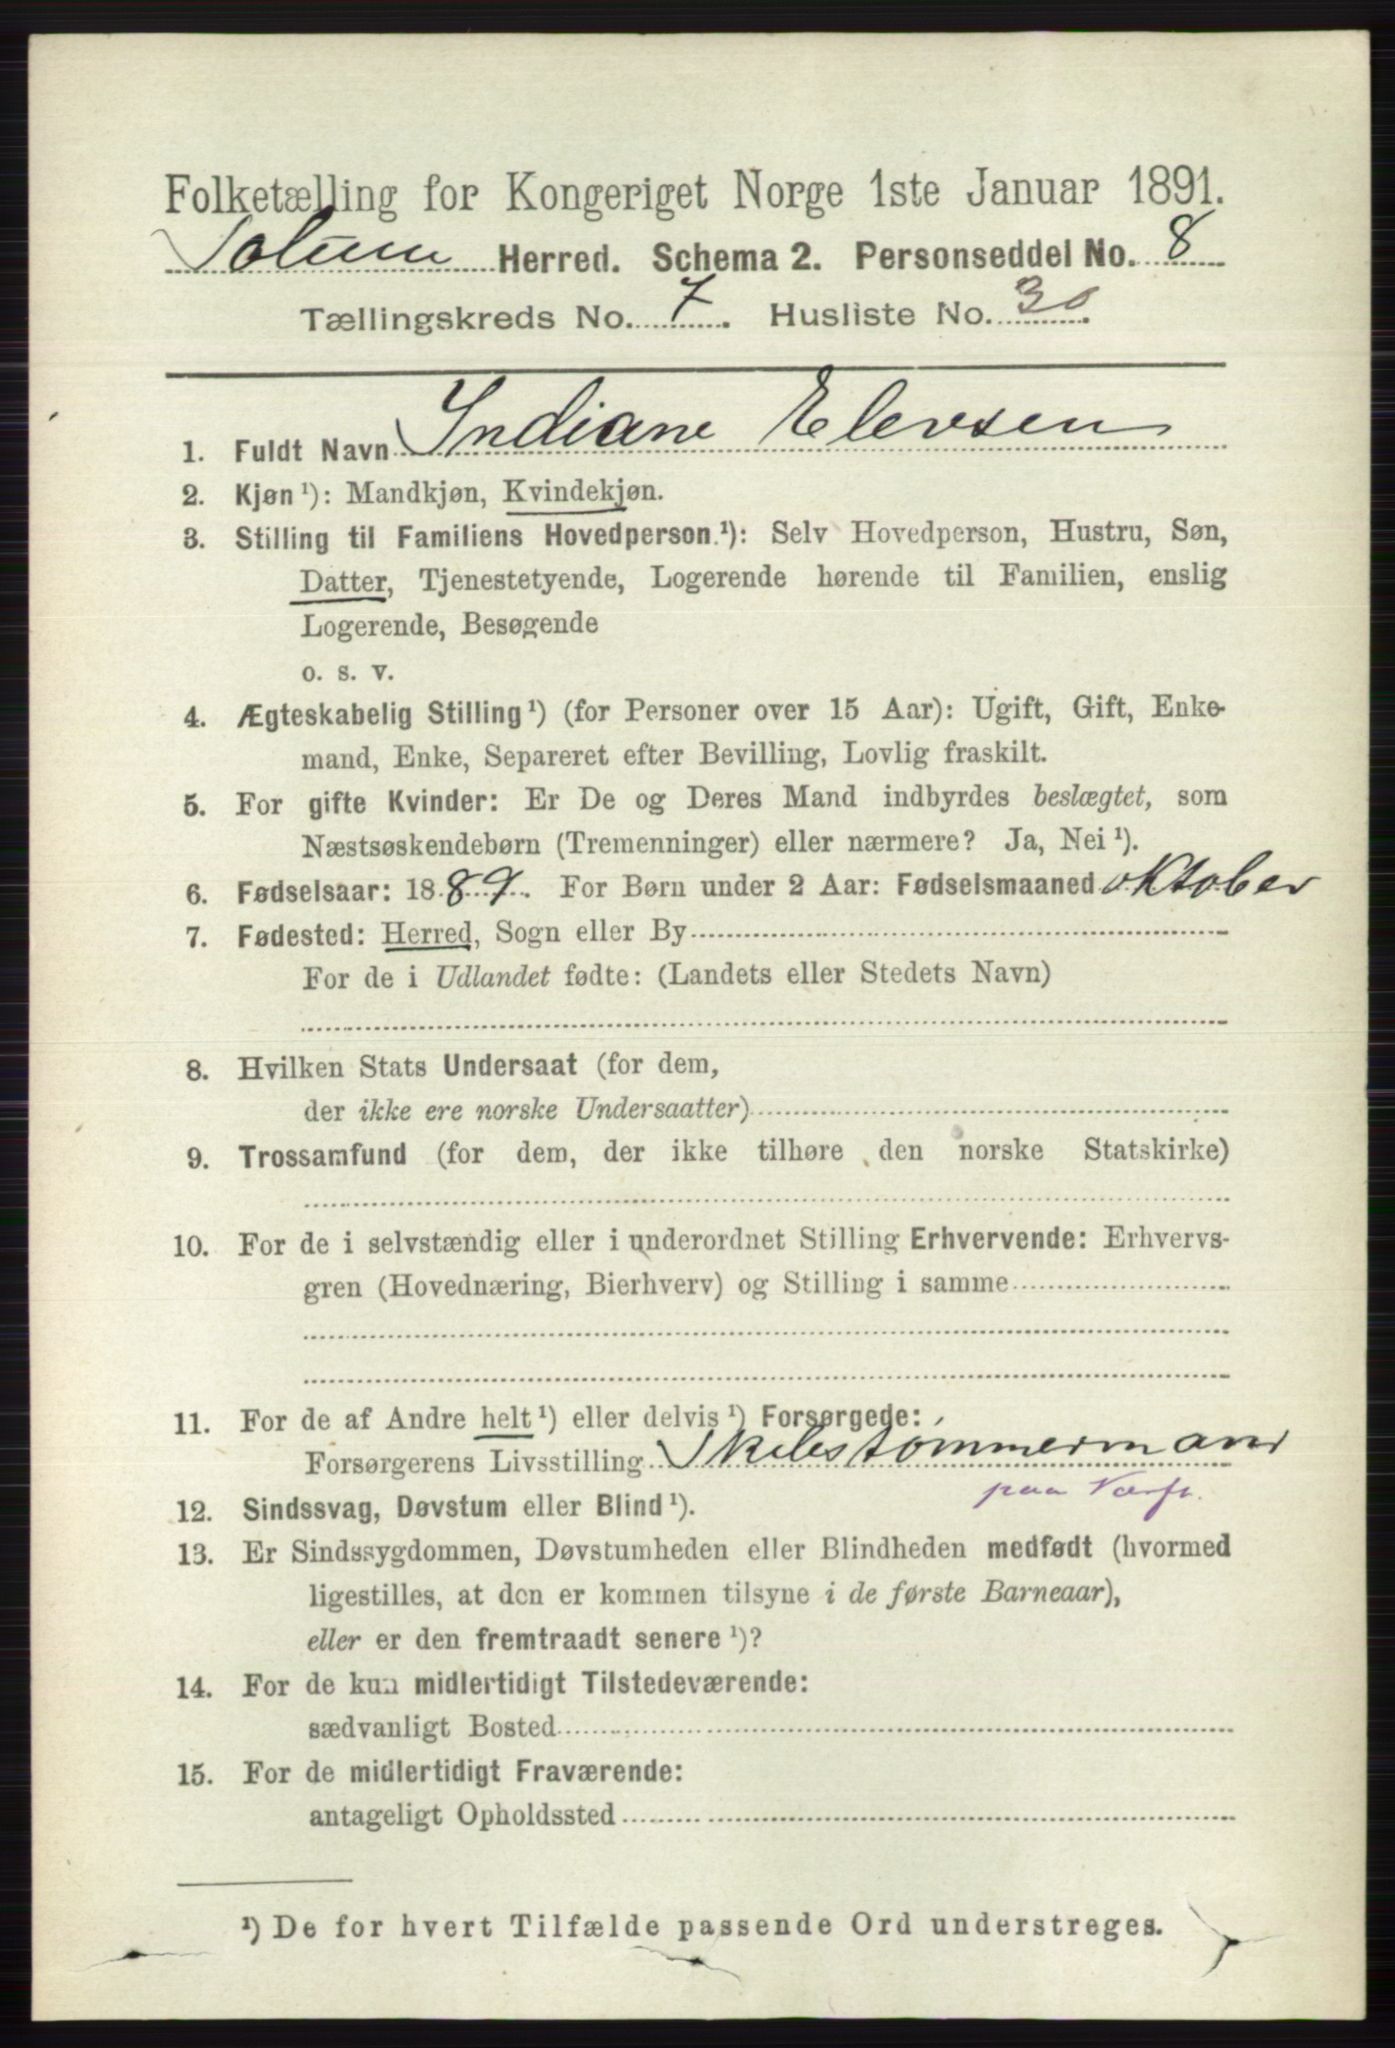 Folketælling for Kongeriget Norge 1ste Januar 1891.
Solum Herred. Schema 2. Personseddel No. 8
Tællingskreds No. 7. Husliste No. 30.
1. Fuldt Navn Indiane Elevsen
2. Kjøn ¹): Mandkjøn, Kvindekjøn.
3. Stilling til Familiens Hovedperson ¹): Selv Hovedperson, Hustru, Søn,
Datter, Tjenestetyende, Logerende hørende til Familien, enslig
Logerende, Besøgende
o. s. v.
4. Ægteskabelig Stilling ¹) (for Personer over 15 Aar): Ugift, Gift, Enke-
mand, Enke, Separeret efter Bevilling, Lovlig fraskilt.
5. For gifte Kvinder: Er De og Deres Mand indbyrdes beslægtet, som
Næstsøskendebørn (Tremenninger) eller nærmere? Ja, Nei ¹).
6. Fødselsaar: 1889. For Børn under 2 Aar: Fødselsmaaned oktober
7. Fødested: Herred, Sogn eller By
For de i Udlandet fødte: (Landets eller Stedets Navn)
8. Hvilken Stats Undersaat (for dem,
der ikke ere norske Undersaatter)
9. Trossamfund (for dem, der ikke tilhøre den norske Statskirke)
10. For de i selvstændig eller i underordnet Stilling Erhvervende: Erhvervs-
gren (Hovednæring, Bierhverv) og Stilling i samme
11. For de af Andre helt ¹) eller delvis ¹) Forsørgede:
Forsørgerens Livsstilling Skibstømmermand
paa Værft.
12. Sindssvag, Døvstum eller Blind ¹).
13. Er Sindssygdommen, Døvstumheden eller Blindheden medfødt (hvormed
ligestilles, at den er kommen tilsyne i de første Barneaar),
eller er den fremtraadt senere ¹)?
14. For de kun midlertidigt Tilstedeværende:
sædvanligt Bosted
15. For de midlertidigt Fraværende:
antageligt Opholdssted
¹) De for hvert Tilfælde passende Ord understreges.